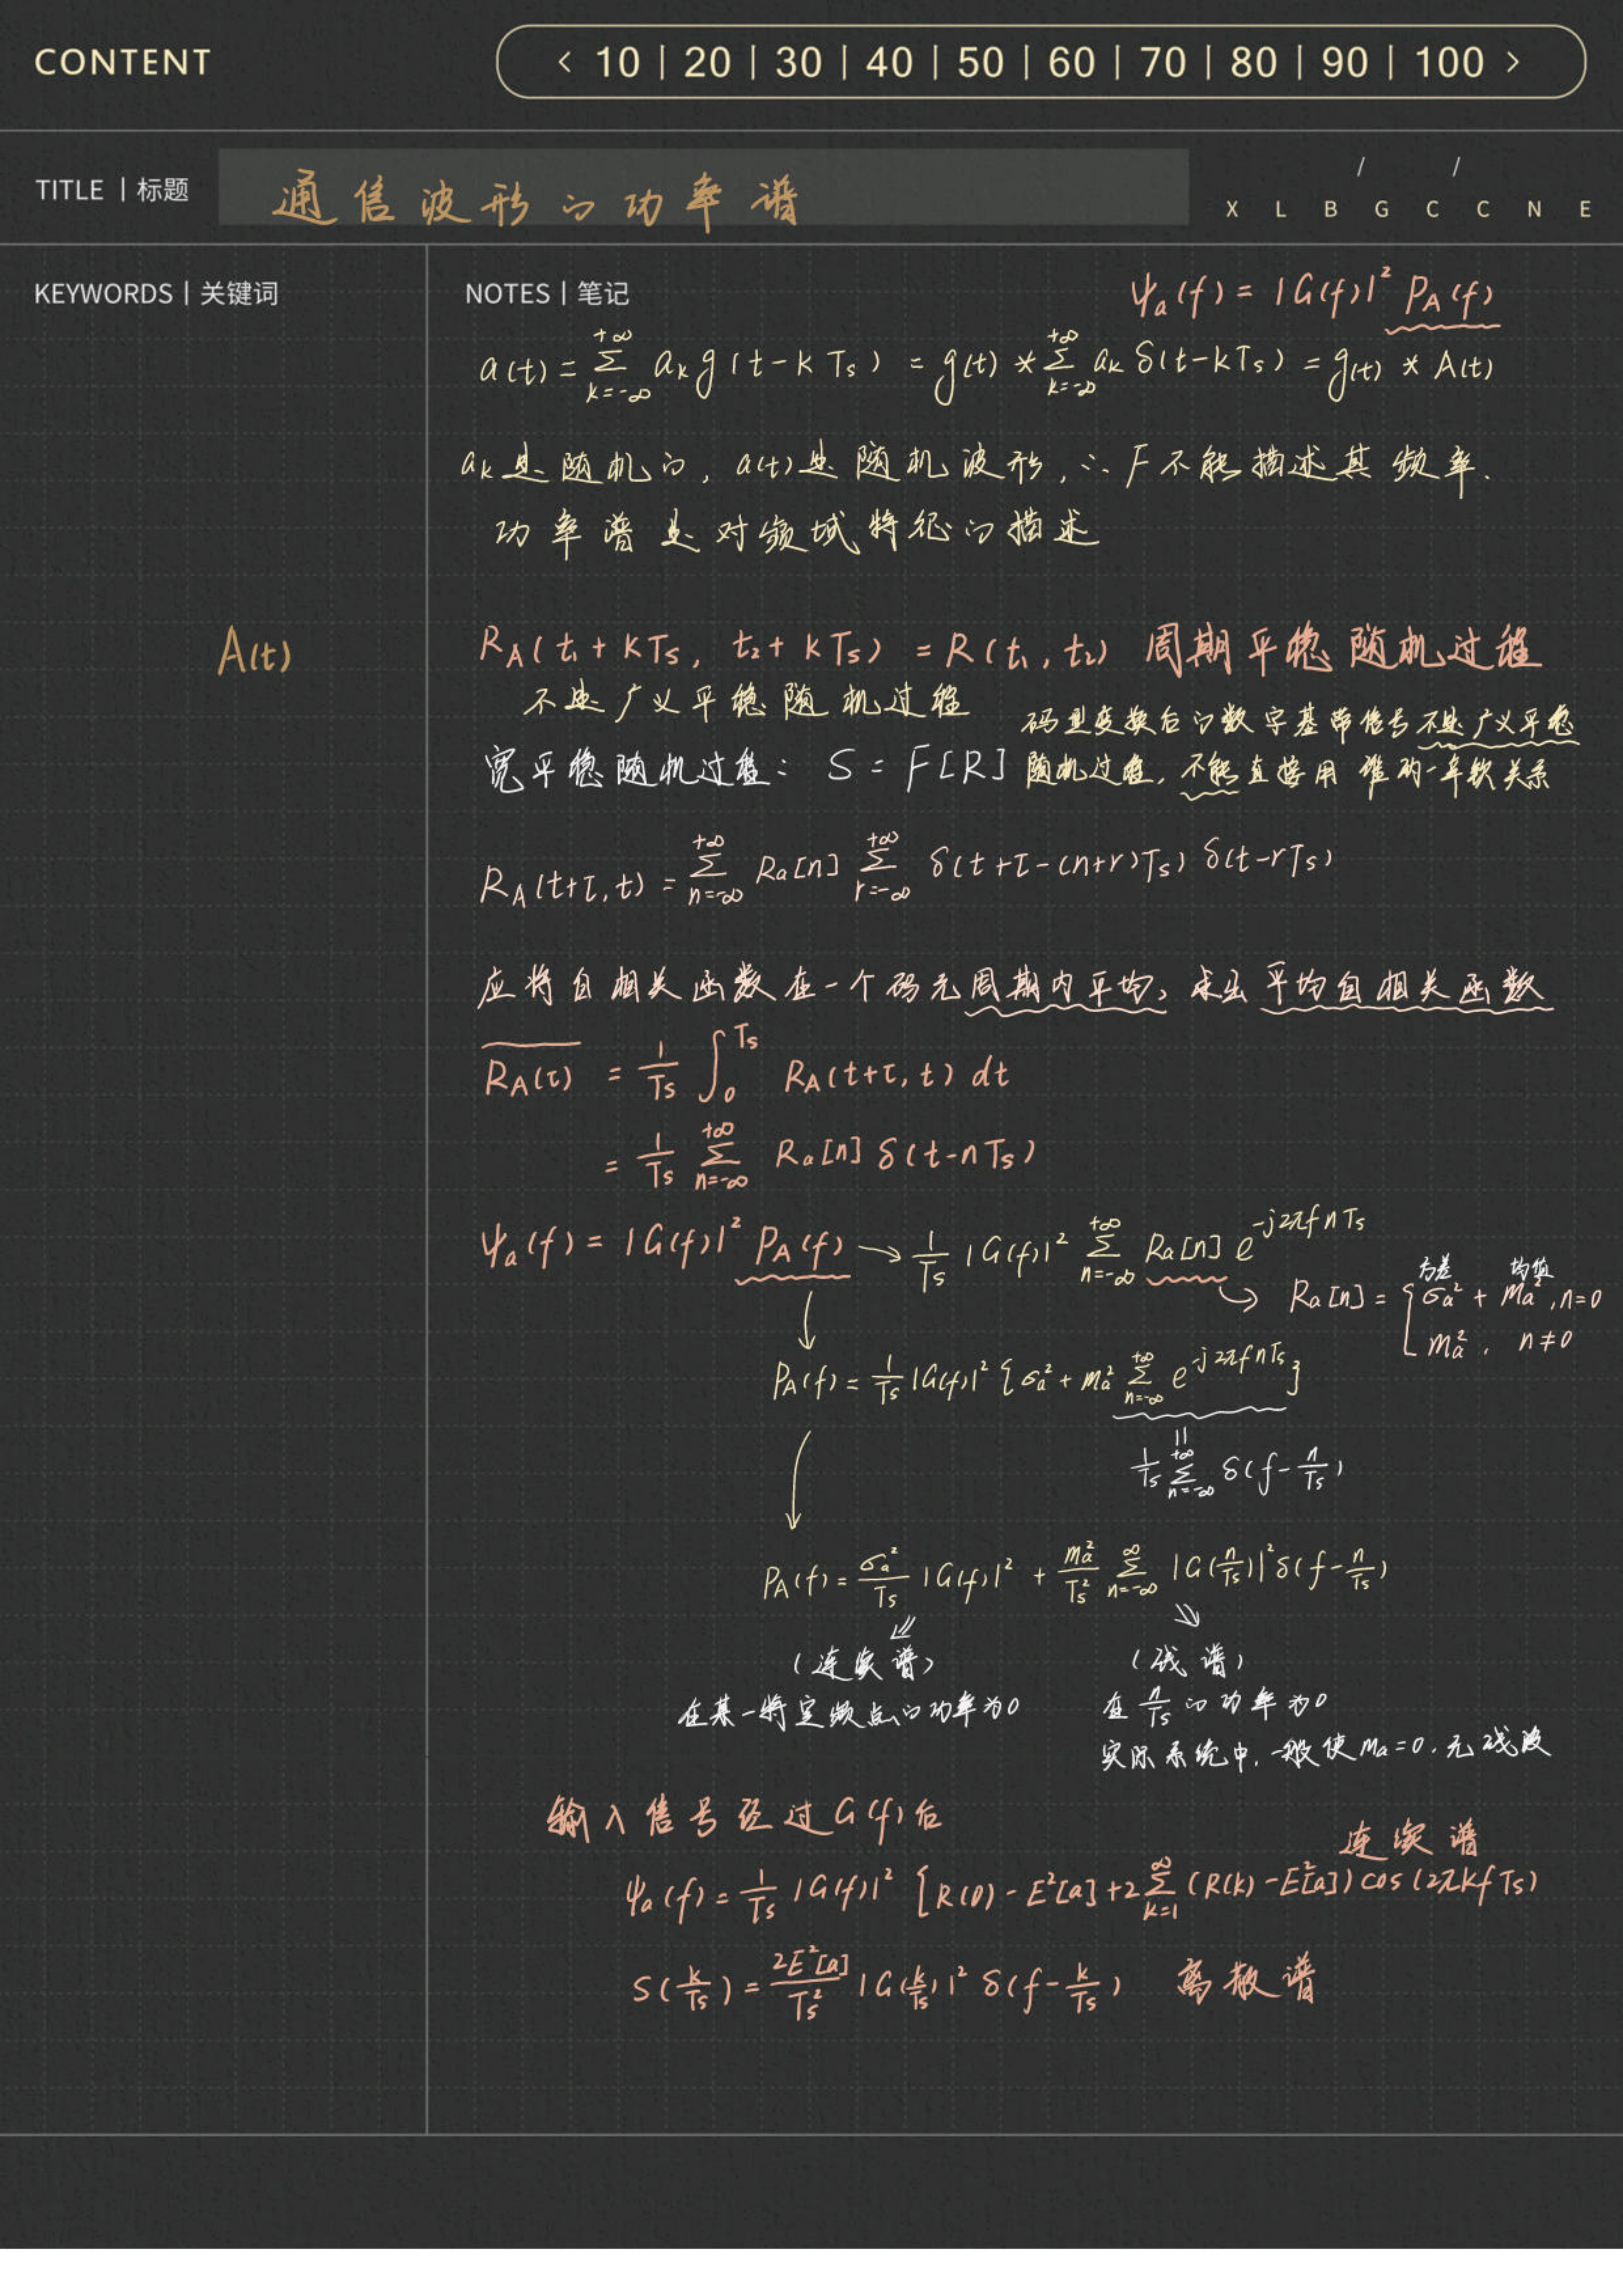 CONTENT
< 10 | 20 | 30 | 40 | 50 | 60 | 70 | 80 | 90 | 100 >
TITLE | 标题
通信波形的功率谱
/ /
X L B G C C N E
KEYWORDS | 关键词
NOTES | 笔记
Ψa(f) = |G(f)|² PA(f)
a(t) = Σ_{k=-∞}^{+∞} ak g(t-kTs) = g(t) * Σ_{k=-∞}^{+∞} ak δ(t-kTs) = g(t) * A(t)
ak是随机的, a(t)是随机波形, ∴ F不能描述其频率.
功率谱是对频域特征的描述
A(t)
RA(t1+kTs, t2+kTs) = R(t1, t2) 周期平稳随机过程
不是广义平稳随机过程
码型变换后的数字基带信号不是广义平稳
宽平稳随机过程: S = F[R]
随机过程, 不能直接用维纳-辛钦关系
RA(t+τ, t) = Σ_{n=-∞}^{+∞} Ra[n] Σ_{r=-∞}^{+∞} δ(t+τ-(n+r)Ts) δ(t-rTs)
应将自相关函数在一个码元周期内平均, 求出平均自相关函数
\overline{RA(τ)} = 1/Ts ∫_0^{Ts} RA(t+τ, t) dt
= 1/Ts Σ_{n=-∞}^{+∞} Ra[n] δ(t-nTs)
Ψa(f) = |G(f)|² PA(f) → 1/Ts |G(f)|² Σ_{n=-∞}^{+∞} Ra[n] e^{-j2πfnTs}
方差 均值
Ra[n] = { σa² + ma², n=0
ma², n≠0
PA(f) = 1/Ts |G(f)|² {σa² + ma² Σ_{n=-∞}^{+∞} e^{-j2πfnTs}}
||
1/Ts Σ_{n=-∞}^{+∞} δ(f-n/Ts)
PA(f) = σa²/Ts |G(f)|² + ma²/Ts² Σ_{n=-∞}^{∞} |G(n/Ts)|² δ(f-n/Ts)
(连续谱)
(线谱)
在某一特定频点的功率为0
在 n/Ts 的功率为0
实际系统中, 一般使ma=0, 无线波
输入信号经过G(f)后
连续谱
Ψa(f) = 1/Ts |G(f)|² [R(0) - E²[a] + 2Σ_{k=1}^{∞} (R(k) - E²[a]) cos(2πkfTs)
S(k/Ts) = 2E²[a]/Ts² |G(k/Ts)|² δ(f-k/Ts) 离散谱